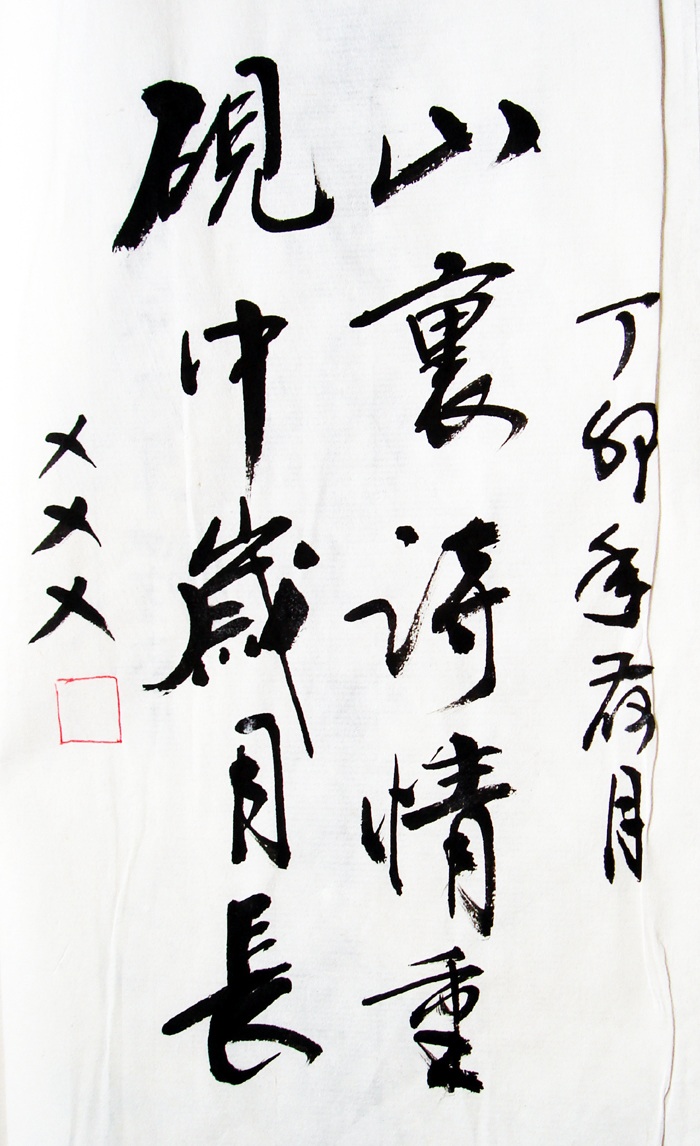 丁卯年月
山裏詩情重
硯中歲月長
×××